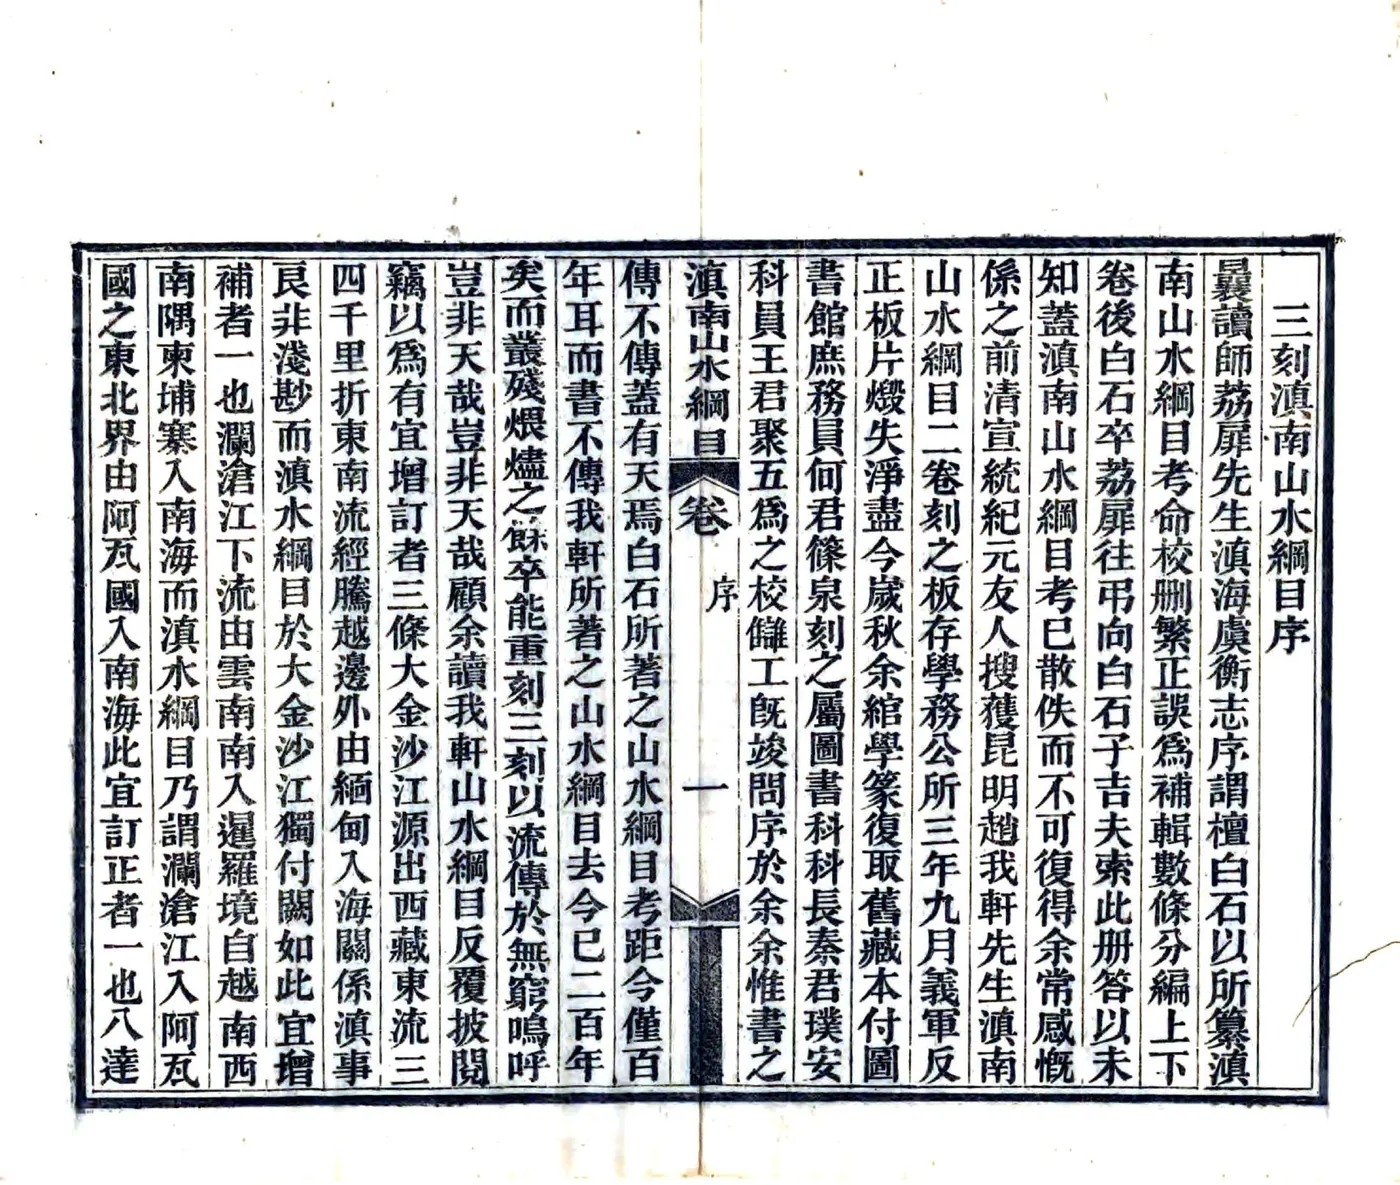 三刻滇南山水綱目序
曩讀師荔扉先生滇海虞衡志序謂檀白石以所纂滇
南山水綱目考命校刪繁正誤爲補輯數條分編上下
卷後白石卒荔扉往弔向白石子吉夫索此册答以未
知蓋滇南山水綱目考已散佚而不可復得余常感慨
係之前清宣統紀元友人搜獲昆明趙我軒先生滇南
山水綱目二卷刻之板存學務公所三年九月義軍反
正板片燬失淨盡今嵗秋余綰學篆復取舊藏本付圖
書館庶務員何君篠泉刻之屬圖書科科長秦君璞安
科員王君聚五爲之校讎工旣竣問序於余余惟書之
滇南山水綱目
卷
序
一
傳不傳蓋有天焉白石所著之山水綱目考距今僅百
年耳而書不傳我軒所著之山水綱目去今已二百年
矣而叢殘煨燼之餘卒能重刻三刻以流傳於無窮嗚呼
豈非天哉豈非天哉顧余讀我軒山水綱目反覆披閱
竊以爲有宜增訂者三條大金沙江源出西藏東流三
四千里折東南流經騰越邊外由緬甸入海關係滇事
良非淺尠而滇水綱目於大金沙江獨付闕如此宜增
補者一也瀾滄江下流由雲南南入暹羅境自越南西
南隅柬埔寨入南海而滇水綱目乃謂瀾滄江入阿瓦
國之東北界由阿瓦國入南海此宜訂正者一也八達